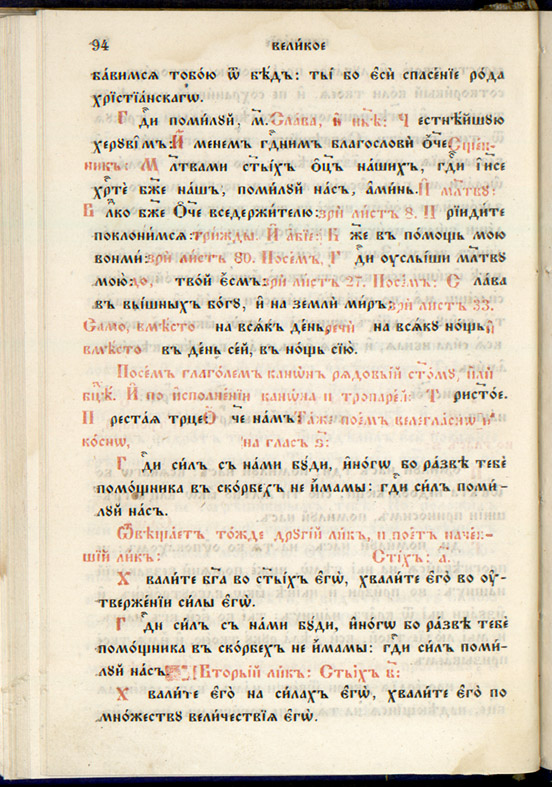 94 вели́кое
ба́вимсѧ тобо́ю ѿ бѣ́дъ: ты́ бо є҆сѝ спасе́нїе ро́да
хрїстїа́нскагѡ.
Гдⷭ҇и поми́луй, м҃. Сла́ва, и҆ ны́нѣ: Честнѣ́йшую
херуві́мъ: И҆́менемъ гдⷭ҇нимъ благословѝ ѻ҆́тче. Сщ҃е́н-
никъ: Мл҃твами ст҃ы́хъ ѻ҆ц҃ъ на́шихъ, гдⷭ҇и і҆и҃се
хрⷭ҇тѐ бж҃е на́шъ, поми́луй на́съ, а҆ми́нь. И҆ мл҃тву:
Влⷣко бж҃е Ѻ҆́ч҃е вседержи́телю: зрѝ ли́стъ 8. Прїиди́те
поклони́мсѧ: три́жды. И҆ а҆́бїе: Бж҃е въ по́мощь мою̀
вонмѝ: зрѝ ли́стъ 80. Посе́мъ, Гдⷭ҇и ᲂу҆слы́ши мл҃тву
мою̀: до, тво́й є҆́смь: зрѝ ли́стъ 27. Посе́мъ: Сла́ва
въ вы́шнихъ бг҃у, и҆ на землѝ ми́ръ: зрѝ ли́стъ 33.
Само, вмѣ́стѡ на всѧ́къ де́нь, речѝ на всѧ́ку но́щь: и҆
вмѣ́стѡ въ де́нь се́й, въ но́щь сїю̀.
Посе́мъ глаго́лемъ канѡ́нъ рѧдовы́й ст҃о́му, и҆лѝ
бцⷣѣ. И҆ по и҆сполне́нїи канѡ́на и҆ тропаре́й: Трист҃о́е.
Прест҃а́ѧ трⷪ҇це: Ѻ҆́ч҃е на́мъ: Та́же пое́мъ велегла́снѡ и҆
ко́снѡ, на гла́съ ѕ҃:
Гдⷭ҇и си́лъ съ на́ми бу́ди, и҆но́гѡ бо ра́звѣ тебѐ
помо́щника въ ско́рбехъ не и҆́мамы: гдⷭ҇и си́лъ поми́-
луй на́съ.
Ѿвѣща́етъ то́жде другі́й ли́къ, и҆ пое́тъ наче́н-
шїй ли́къ: Сті́хъ: а҃.
Хвали́те бг҃а во ст҃ы́хъ є҆гѡ̀, хвали́те є҆го̀ во ᲂу҆-
тверже́нїи си́лы є҆гѡ̀.
Гдⷭ҇и си́лъ съ на́ми бу́ди, и҆но́гѡ бо ра́звѣ тебѐ
помо́щника въ ско́рбехъ не и҆́мамы: гдⷭ҇и си́лъ поми́-
луй на́съ. Вторы́й ли́къ: Сті́хъ в҃:
Хвали́те є҆го̀ на си́лахъ є҆гѡ̀, хвали́те є҆го̀ по
мно́жеству вели́чествїѧ є҆гѡ̀.